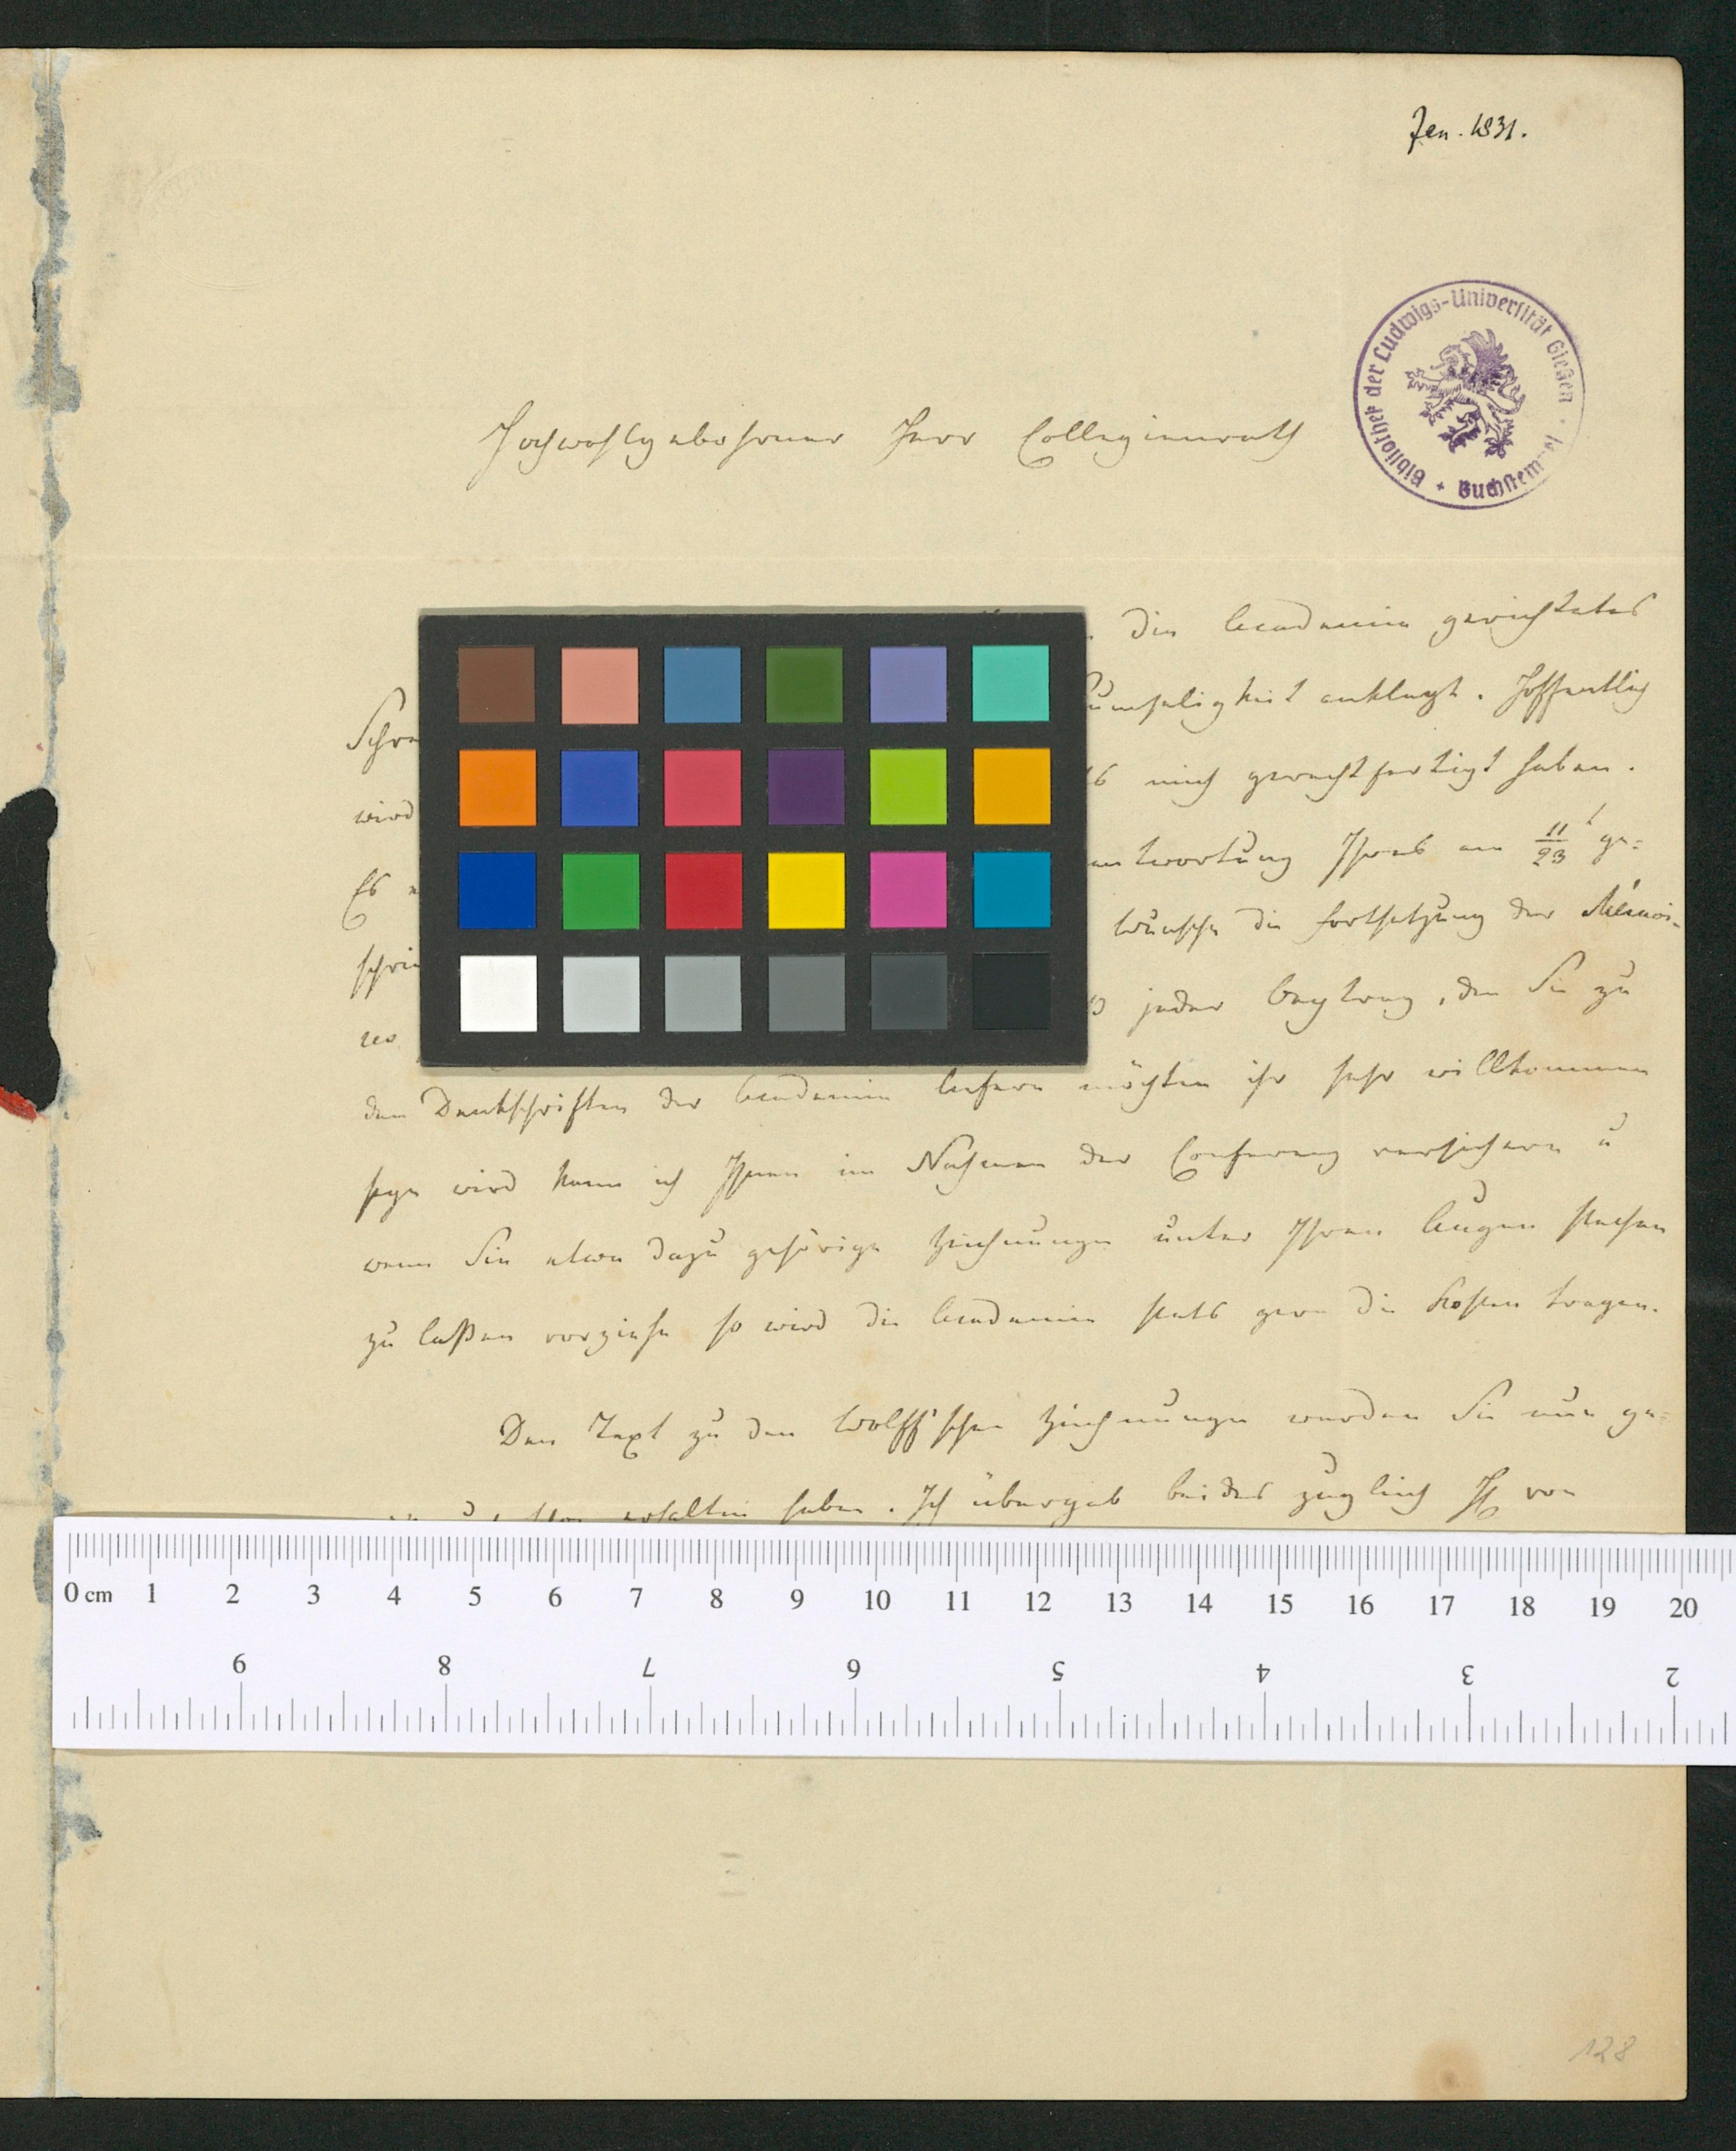 Jan. 1831.
Bibliothek der Ludwigs-Universität Gießen
Buchstem
Hochwohlgebohrner Herr Collegienrath
die Academie gerichtetes
Schre
umseligkeit anklagt. Hoffentlich
wird
mich gerechtfertigt haben.
Es
antwortung Ihres am 11/23 t ge=
schrie
wünsche die Fortsetzung der Mémoi-
res
jeder Beytrag, den Sie zu
den Denkschriften der Academie liefern möchten ihr sehr willkommen
seyn wird kann ich Ihnen im Nahmen der Conferenz versichern u
wenn Sie etwa dazu gehörige Zeichnungen unter Ihren Augen stechen
zu laßen vorziehe so wird die Academie stets gern die Kosten tragen.
Den Text zu den Wolff'schen Zeichnungen werden Sie nun ge=
erhalten haben. Ich übergab beides zugleich H von
0 cm 1 2 3 4 5 6 7 8 9 10 11 12 13 14 15 16 17 18 19 20
9 8 7 6 5 4 3 2
128